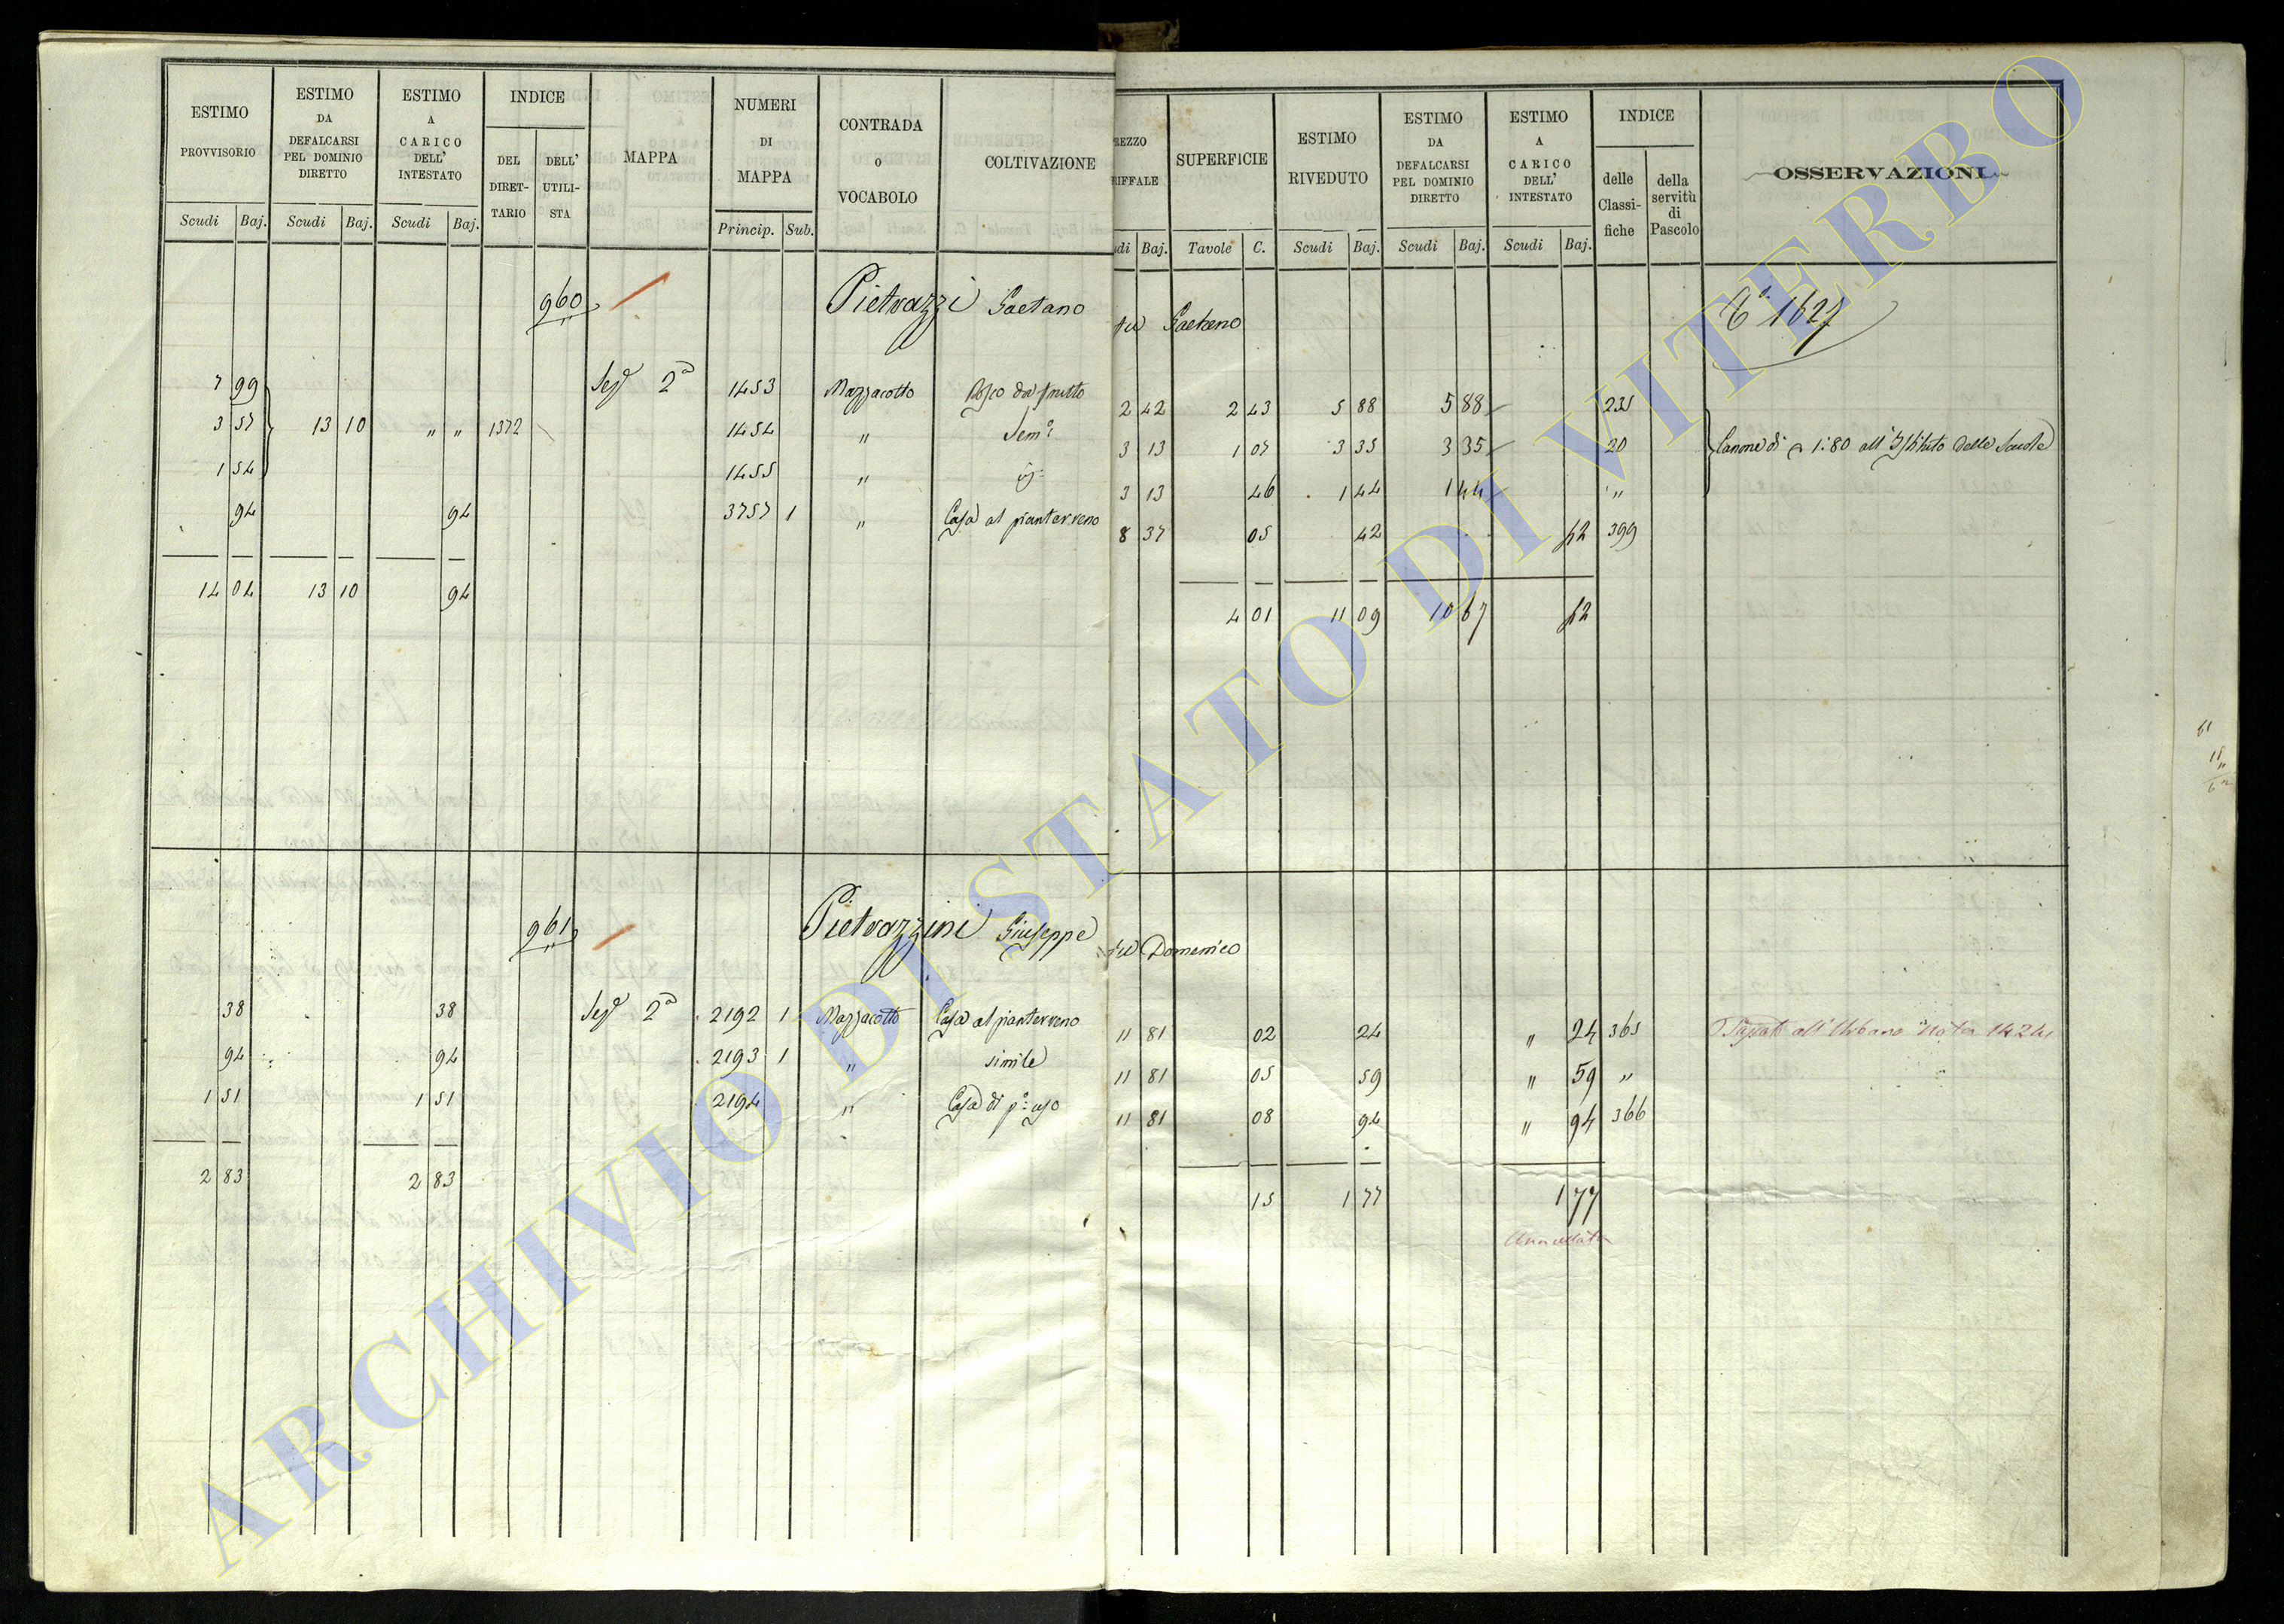 ESTIMO PROVVISORIO Scudi Baj. ESTIMO DA DEFALCARSI PEL DOMINIO DIRETTO Scudi Baj. ESTIMO A CARICO DELL' INTESTATO Scudi Baj. INDICE DEL DIRETTARIO DELL' UTILISTA MAPPA NUMERI DI MAPPA Princip. Sub. CONTRADA o VOCABOLO COLTIVAZIONE
REZZO RIFFALE di Baj. SUPERFICIE Tavole C. ESTIMO RIVEDUTO Scudi Baj. ESTIMO DA DEFALCARSI PEL DOMINIO DIRETTO Scudi Baj. ESTIMO A CARICO DELL' INTESTATO Scudi Baj. INDICE delle Classifiche della servitù di Pascolo OSSERVAZIONI
960 Pietrazzi Gaetano fu Gaetano 1627
7 99 Sezᵉ 2ᵃ 1453 Mazzacotto Bosco da frutto 2 42 2 43 5 88 5 88 235
3 57 13 10 " " 1372 1454 " Semᵒ 3 13 1 07 3 35 3 35 20 Canone di 1:80 all'Istituto delle Scuole
1 54 1455 " 3 13 46 1 44 1 44 "
94 94 3757 1 " Casa al pianterreno 8 37 05 42 42 399
14 04 13 10 94 4 01 11 09 10 67 42
961 Pietrazzini Giuseppe fu Domenico
38 38 Sezᵉ 2ᵃ 2192 1 Mazzacotto Casa al pianterreno 11 81 02 24 " 24 365 Passato all'Urbano Nota 1424
94 94 2193 1 " simile 11 81 05 59 " 59 "
1 51 1 51 2194 " Casa di pᵒ uso 11 81 08 94 " 94 366
2 83 2 83 15 1 77 1 77
Annullata
ARCHIVIO DI STATO DI VITERBO